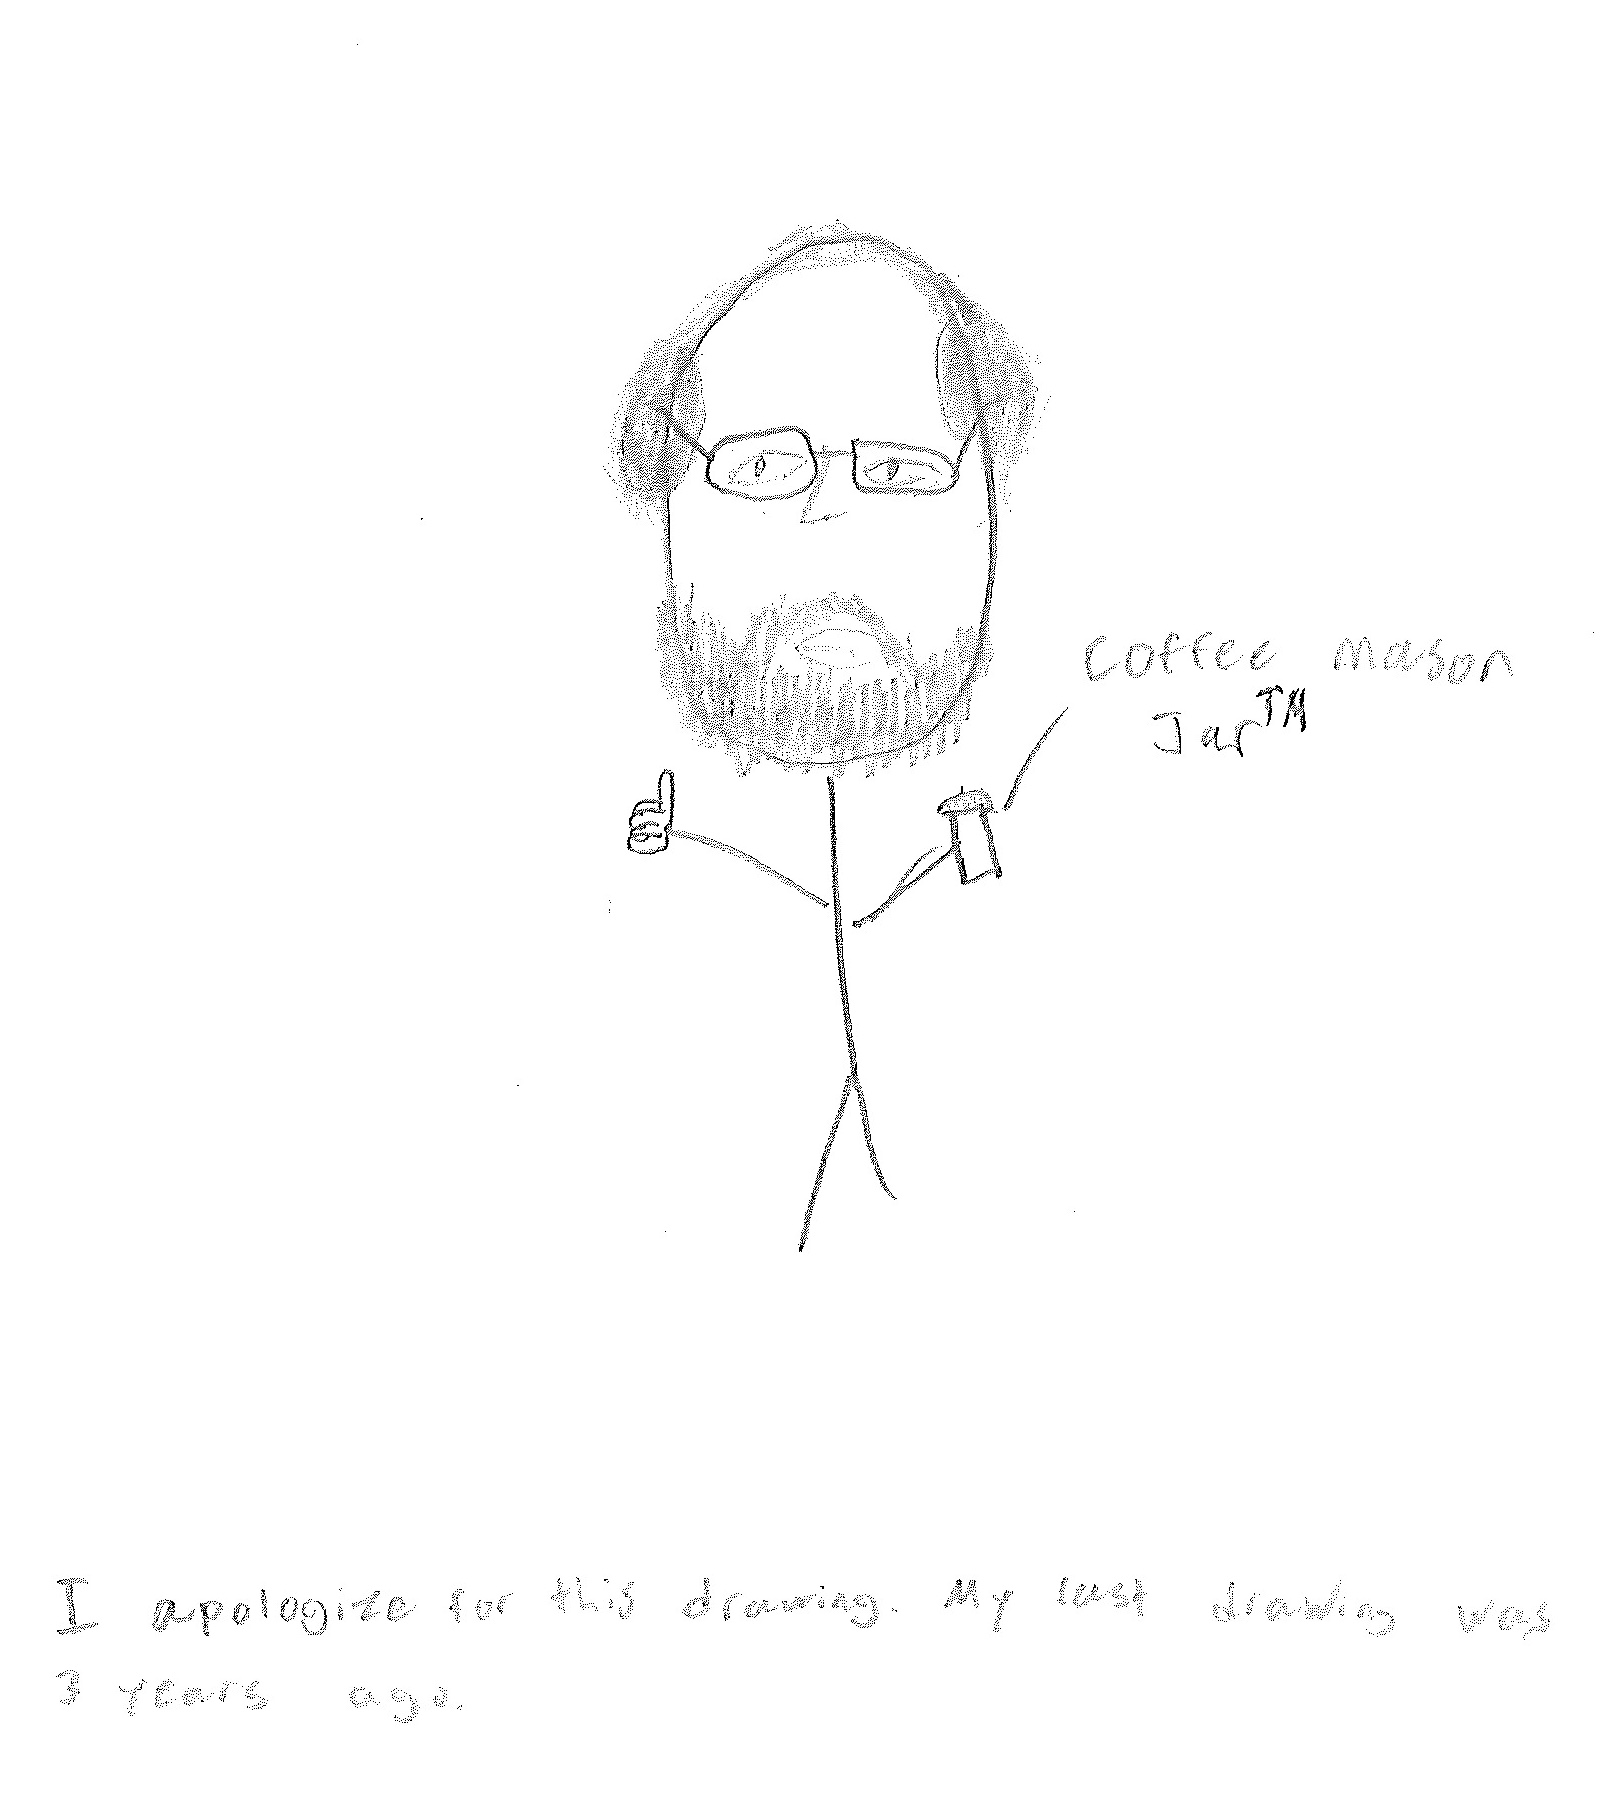 Coffee Mason
Jar™
I apologize for this drawing. My last drawing was
3 years ago.